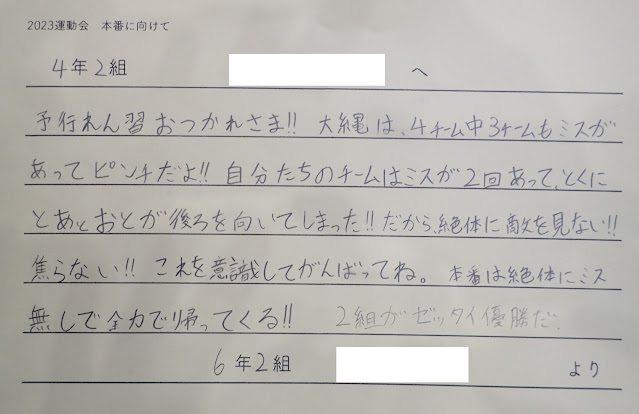 2023運動会 本番に向けて
4年2組 へ
予行れん習おつかれさま!! 大縄は、4チーム中3チームもミスが
あってピンチだよ!! 自分たちのチームはミスが2回あって、とくに
とあとおとが後ろを向いてしまった!! だから、絶体に敵を見ない!!
焦らない!! これを意識してがんばってね。 本番は絶体にミス
無しで全力で帰ってくる!! 2組がゼッタイ優勝だ.
6年2組 より